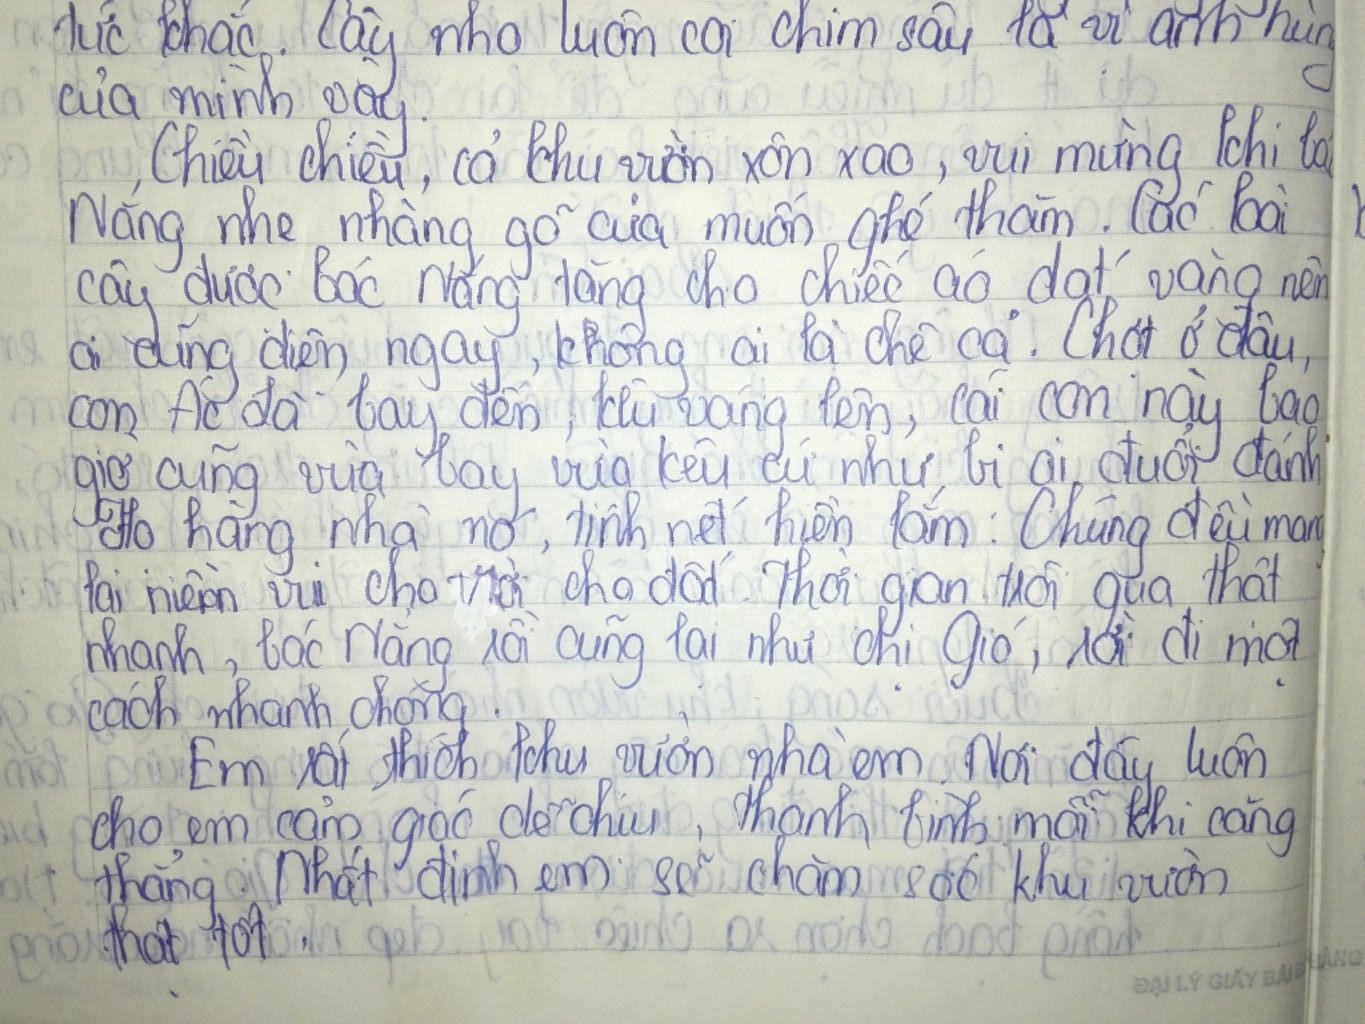 tức khắc. Cây nho luôn coi chim sâu là vị anh hùng
của mình vậy.
Chiều chiều, cả khu vườn xôn xao, vui mừng khi bác
Nắng nhẹ nhàng gõ cửa muốn ghé thăm. Các loài
cây được bác Nắng tặng cho chiếc áo dát vàng nên
ai cũng diện ngay, không ai là chê cả. Chợt ở đâu,
con Ác đà bay đến, kêu vang lên, cái con này bao
giờ cũng vừa bay vừa kêu cứ như bị ai đuổi đánh
Họ hàng nhà nó, tính nết hiền lắm. Chúng đều mang
lại niềm vui cho trời cho đất. Thời gian trôi qua thật
nhanh, bác Nắng rồi cũng lại như chị Gió, rời đi một
cách nhanh chóng.
Em rất thích khu vườn nhà em. Nơi đấy luôn
cho em cảm giác dễ chịu, thanh bình mỗi khi căng
thẳng. Nhất định em sẽ chăm sóc khu vườn
thật tốt.
ĐẠI LÝ GIẤY BÃI BẰNG